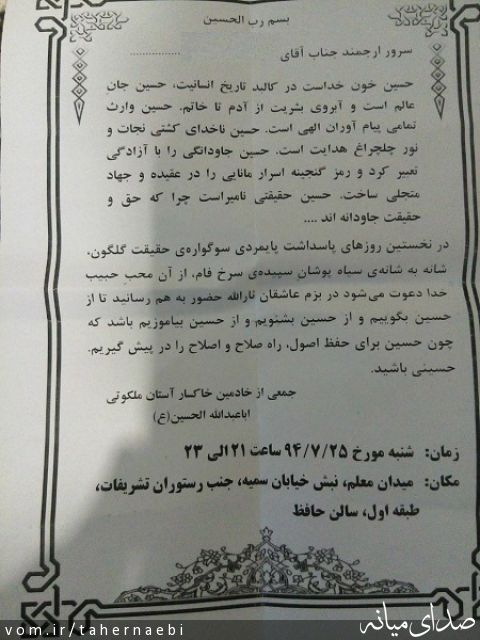 بسم رب الحسین
سرور ارجمند جناب آقای ................
حسین خون خداست در کالبد تاریخ انسانیت، حسین جان
عالم است و آبروی بشریت از آدم تا خاتم. حسین وارث
تمامی پیام آوران الهی است. حسین ناخدای کشتی نجات و
نور چلچراغ هدایت است. حسین جاودانگی را با آزادگی
تعبیر کرد و رمز گنجینه اسرار مانایی را در عقیده و جهاد
متجلی ساخت. حسین حقیقتی نامیراست چرا که حق و
حقیقت جاودانه اند ....
در نخستین روزهای پاسداشت پایمردی سوگواره‌ی حقیقت گلگون،
شانه به شانه‌ی سیاه پوشان سپیده‌ی سرخ فام، از آن محب حبیب
خدا دعوت می‌شود در بزم عاشقان ثارالله حضور به هم رسانید تا از
حسین بگوییم و از حسین بشنویم و از حسین بیاموزیم باشد که
چون حسین برای حفظ اصول، راه صلاح و اصلاح را در پیش گیریم.
حسینی باشید.
جمعی از خادمین خاکسار آستان ملکوتی
اباعبدالله الحسین(ع)
زمان: شنبه مورخ ۹۴/۷/۲۵ ساعت ۲۱ الی ۲۳
مکان: میدان معلم، نبش خیابان سمیه، جنب رستوران تشریفات،
طبقه اول، سالن حافظ
صدای میانه
vom.ir/tahernaebi